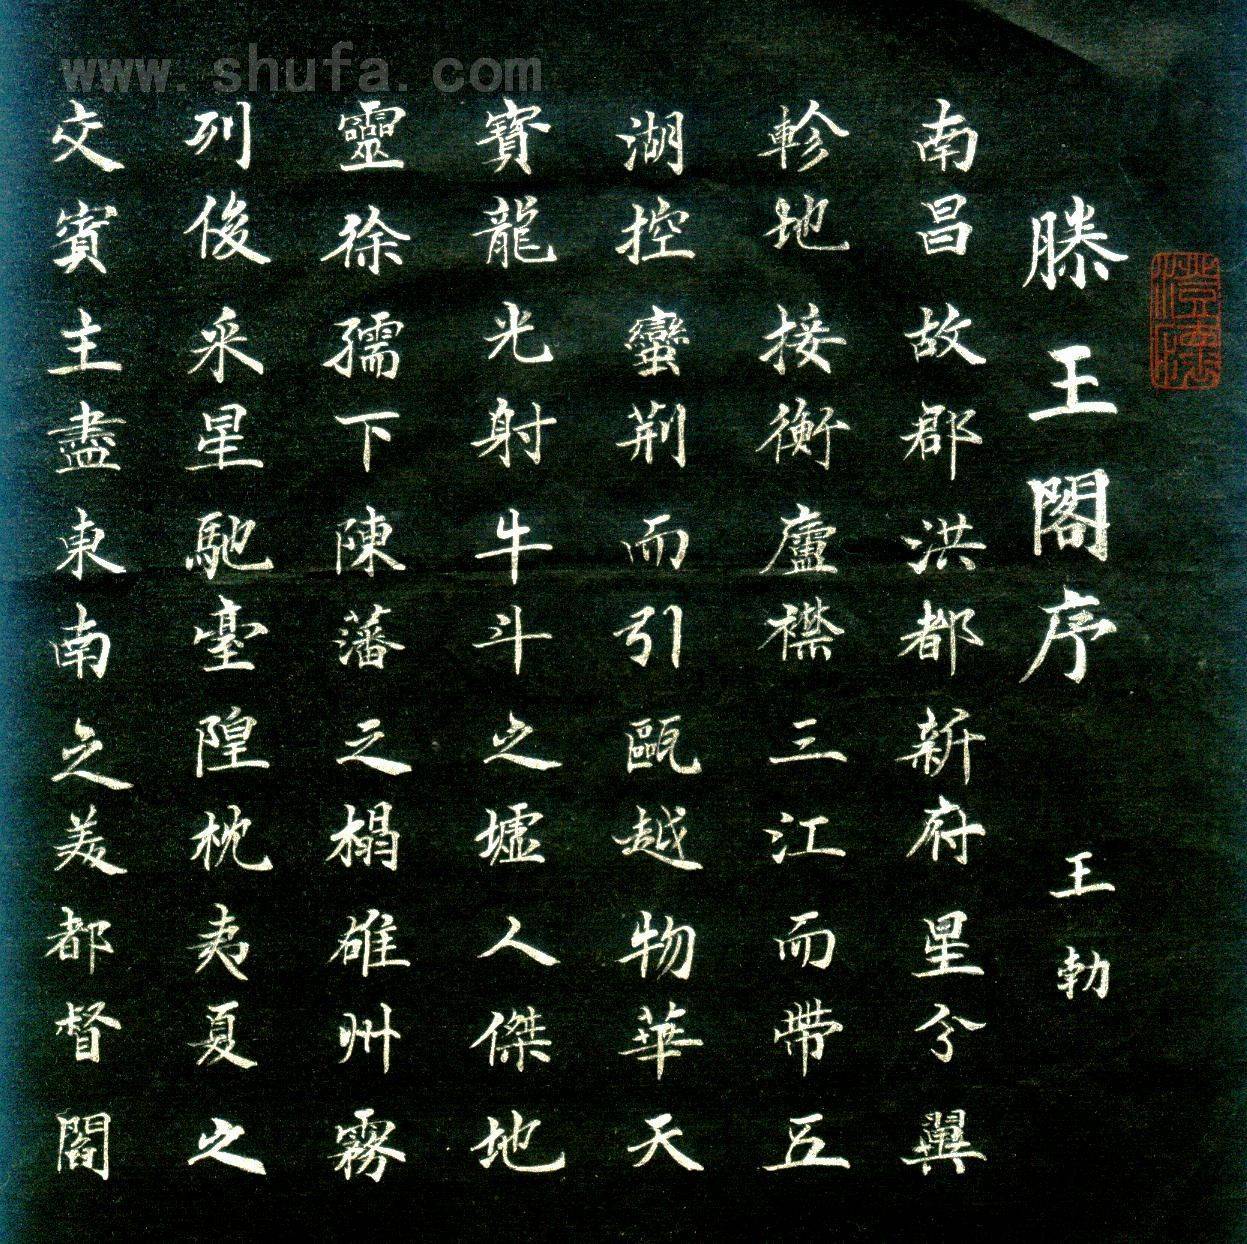 www.shufa.com
滕王閣序 王勃
南昌故郡洪都新府星分翼
軫地接衡廬襟三江而帶五
湖控蠻荊而引甌越物華天
寶龍光射牛斗之墟人傑地
靈徐孺下陳藩之榻雄州霧
列俊采星馳臺隍枕夷夏之
交賓主盡東南之美都督閻